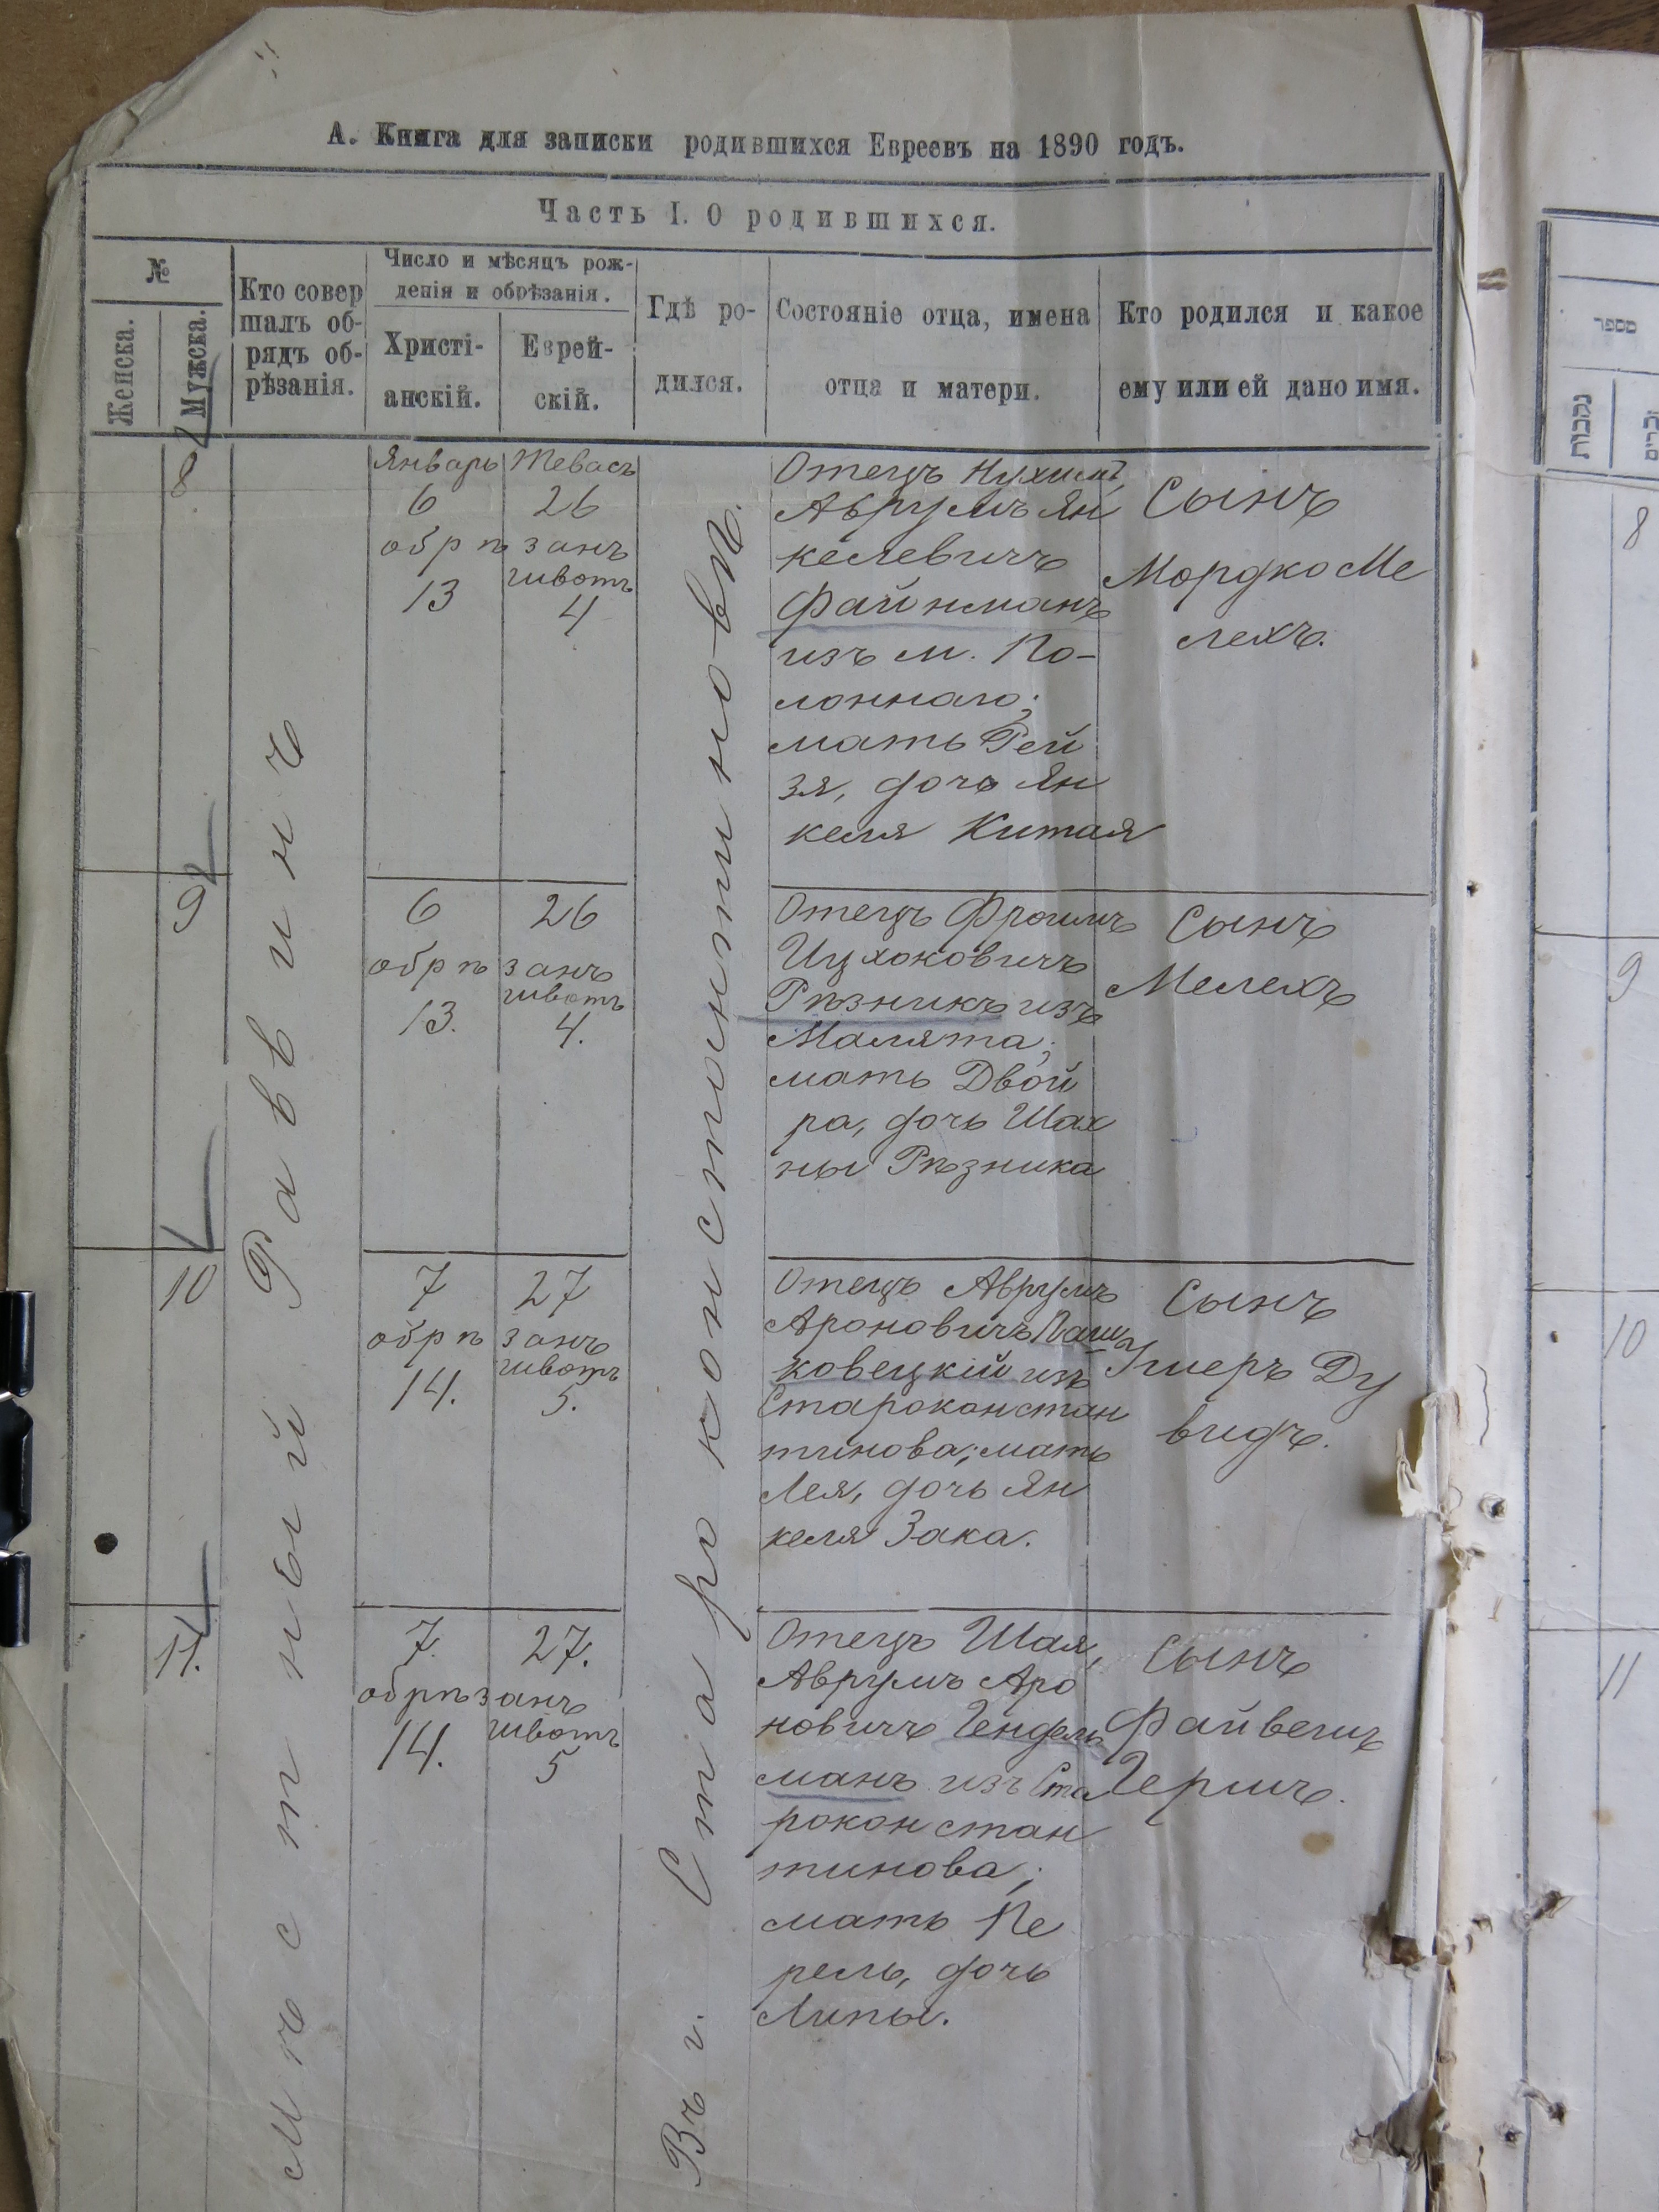 А. Книга для записки родившихся Евреевъ на 1890 годъ.
Часть I. О родившихся.
№
Женска.
Мужска.
Кто совер
шалъ об-
рядъ об-
рѣзанія.
Число и мѣсяцъ рож-
денія и обрѣзанія.
Христі-
анскій.
Еврей-
скій.
Гдѣ ро-
дился.
Состояніе отца, имена
отца и матери.
Кто родился и какое
ему или ей дано имя.
Мѣстный Раввинъ
Въ г. Староконстантиновѣ.
8
Январь Тевасъ
6 26
обрѣзанъ
шватъ
13 4
Отецъ Нухимъ
Аврумъ Ян
келевичъ
Файнманъ
изъ м. По-
лоннаго;
мать Рей
зя, дочь Ян
келя Китая
Сынъ
Мордко Ме
лехъ.
9
6 26
обрѣзанъ
шватъ
13. 4.
Отецъ Фроимъ
Ицхоковичъ
Рѣзникъ изъ
Малята;
мать Двой
ра, дочь Шах
ны Рѣзника
Сынъ
Мелехъ
10
7 27
обрѣзанъ
шватъ
14. 5.
Отецъ Аврумъ
Ароновичъ Паш
ковецкій изъ
Староконстан
тинова; мать
Лея, дочь Ян
келя Зака.
Сынъ
Ушеръ Ду
видъ.
11.
7. 27.
обрѣзанъ
шватъ
14. 5
Отецъ Шая,
Аврумъ Аро
новичъ Гендель
манъ изъ Ста
роконстан
тинова;
мать Пе
рель, дочь
Липы.
Сынъ
Файвешъ
Гершъ.
מספר
נקבות
זכרים
8
9
10
11